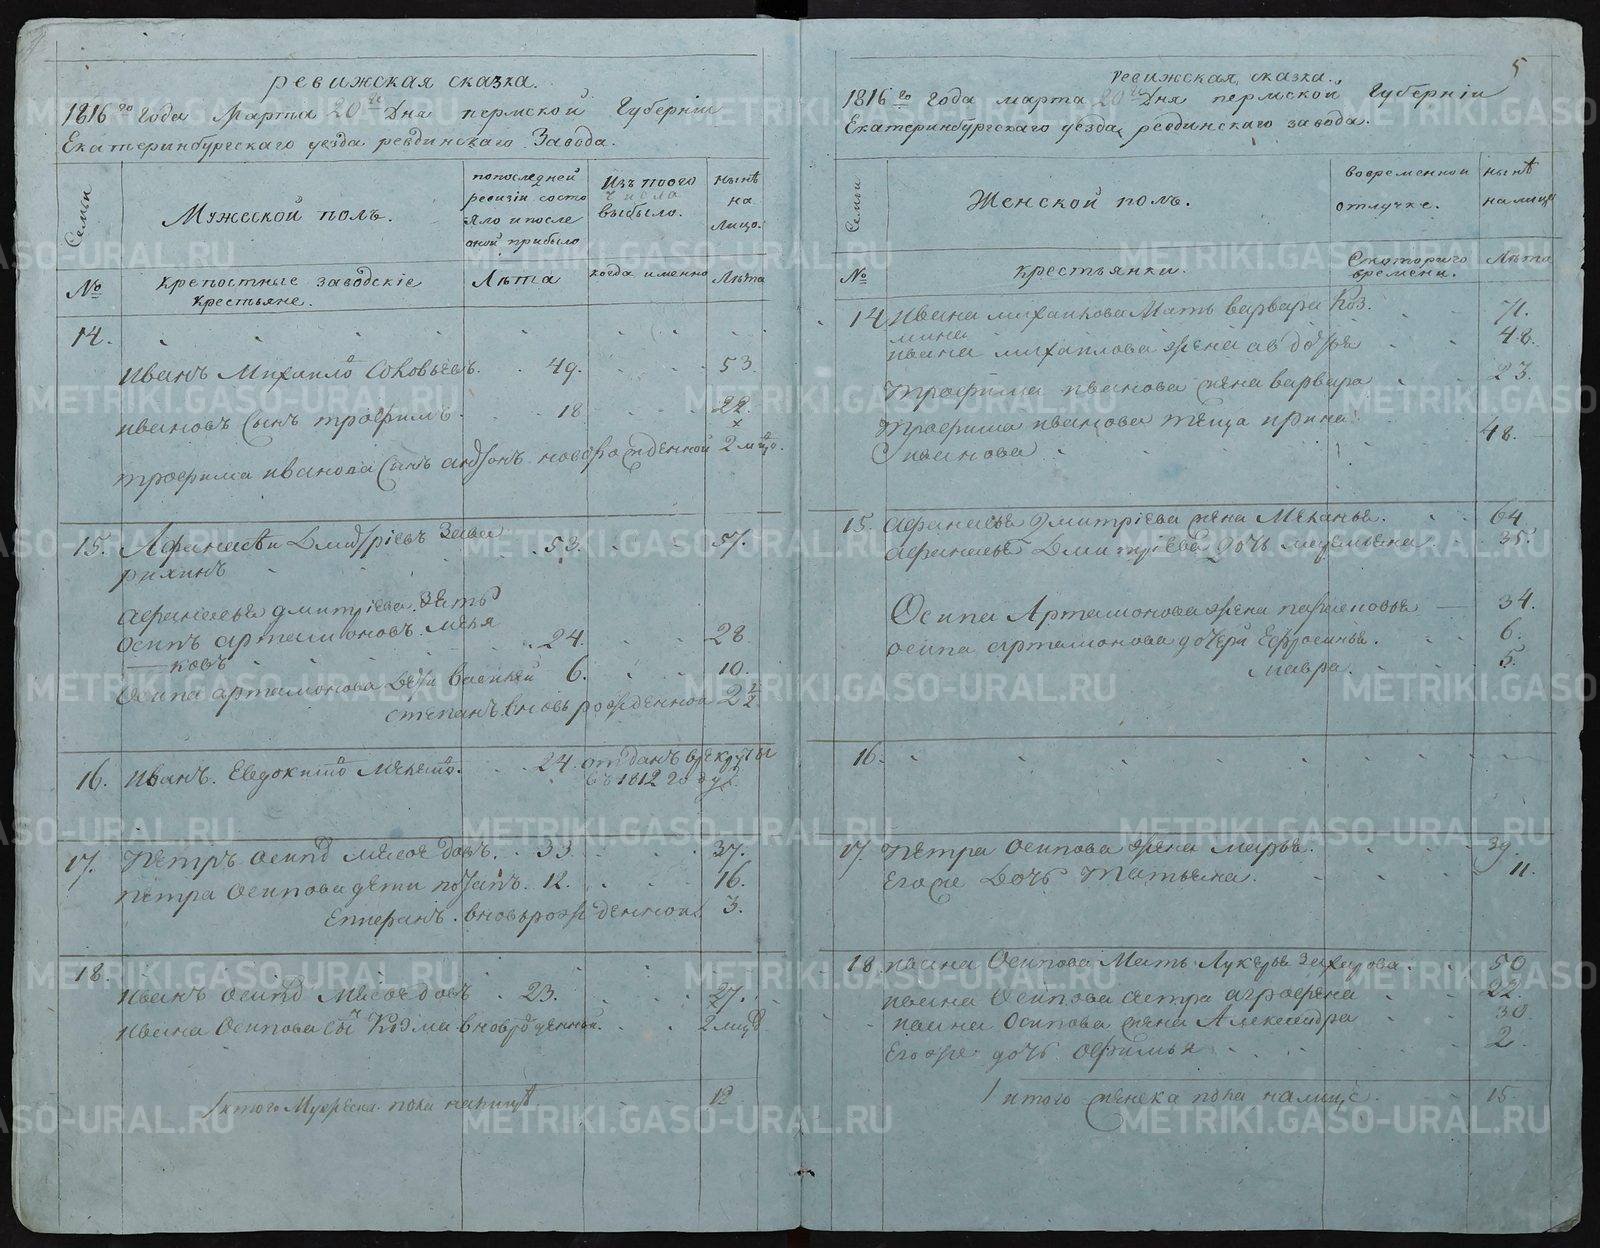 ревижская сказка.
1816го года Марта 20го Дня пермской Губернiи
Екатеринбургскаго уезда ревдинскаго Завода.
Семьи
Мужеской полъ.
попоследней ревизiи состояло ипосле оной прибыло
Изъ того числа выбыло.
нынѣ на лицо.
№
крепостные заводскiе крестьяне.
Лѣта
когда имянно
Лѣта
14.
иванъ Михаило Соковьевъ. 49. 53.
ивановъ Сынъ трофимъ. 18 22.
трофима иванова Сынъ антонъ новорожденной 2 мцо.
15. Афанасеи Дмитрiевъ Зава 53. 57.
рихинъ
афанасья дмитрiева. Зять
Осипъ артамоновъ. меня 24. 28
ковъ
Осипа артамонова Дети василей 6. 10.
степанъ. вновь рожденной 2 1/2
16. иванъ. Евдокимо 24. отданъ врекруты
въ 1812 году
17. Петръ осипо Мясоедовъ. 33 37.
петра Осипова дети потапъ. 12. 16.
Епиеранъ. вновьрожденной 3.
18.
иванъ Осипо Мясоедовъ 23. 27.
ивана Осипова сын Козма вновророжденной. 2 мцо
итого Мужеска пола налицѣ 12
5
ревижская, сказка.
1816го года марта 20го Дня пермской Губернiи
Екатеринбургскаго уезда, ревдинскаго завода.
Семьи
Женской полъ.
вовременной отлучке.
нынѣ налицо
№
крестьянки.
Скоторого времени.
Лѣта
14 Ивана михаилова Мать варвара Коз. 71.
мина
ивана михаилова жена авдотья 48.
трофима иванова жена варвара 23.
трофима иванова теща ирина
иванова 48.
15. афанасья Дмитрiева жена Меланья. 64
афанасья Дмитрiева дочь 35.
Осипа Артамонова жена 34.
осипа артамонова дочери Ефросинья. 6.
мавра. 5.
16.
17. Петра Осипова жена марья. 39.
Егоже Дочь Татьяна. 11.
18. ивана Осипова Мать Лукерья Захарова 50
ивана Осипова сестра агрофена 22.
ивана Осипова жена Александра 30.
Егоже дочь афимья 2.
итого женска пола налице. 15.
METRIKI.GASO-URAL.RU